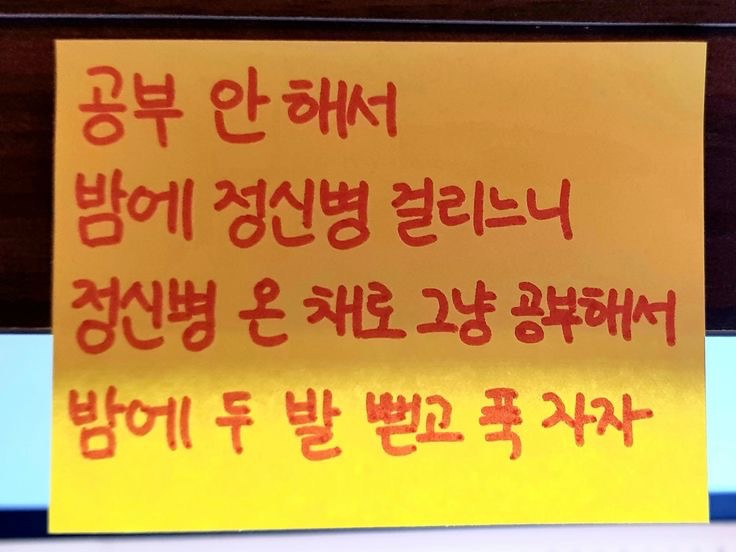 공부 안 해서
밤에 정신병 걸리느니
정신병 온 채로 그냥 공부해서
밤에 두 발 뻗고 푹 자자